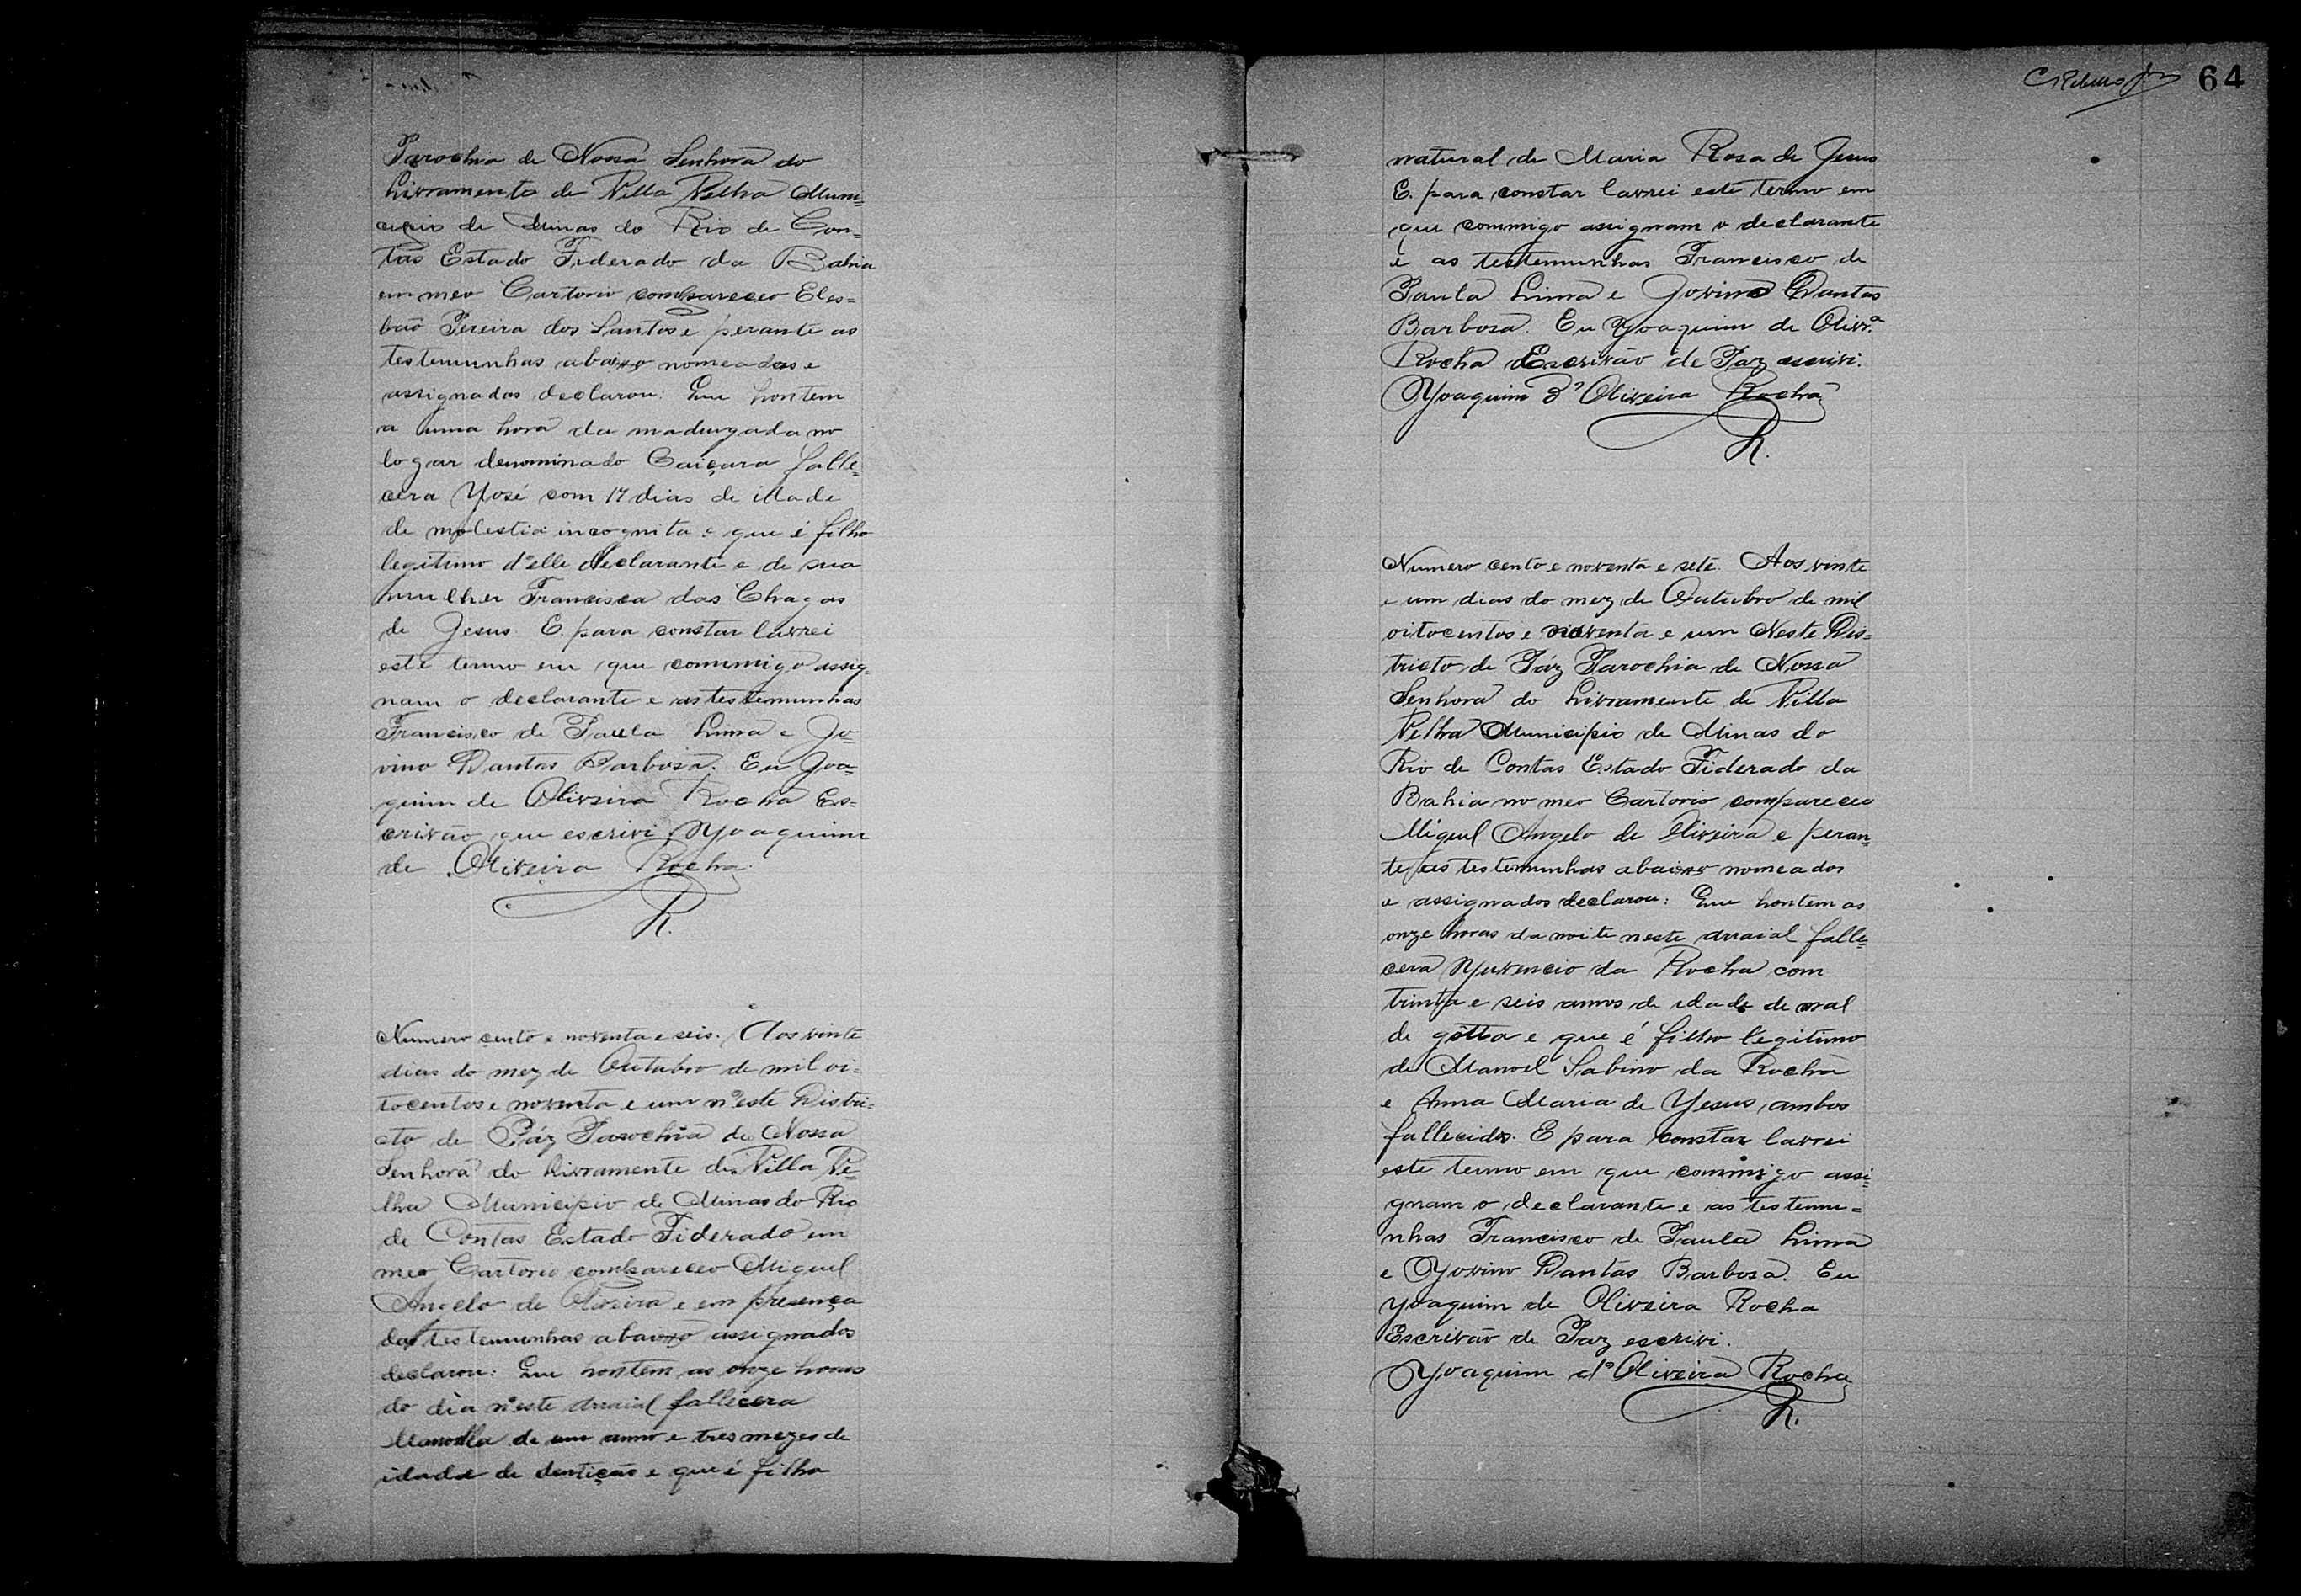 Parochia de Nossa Senhora do
Livramento de Villa Velha Muni=
cipio de Minas do Rio de Con=
tas Estado Federado da Bahia
em meo Cartorio compareceo Eles=
bão Pereira dos Santos e perante as
testemunhas abaixo nomeadas e
assignados declarou: Que hontem
a uma hora da madrugada no
logar denominado Caiçara falle=
cera José com 17 dias de idade
de molestia incognita e que é filho
legitimo d'elle declarante e de sua
mulher Francisca das Chagas
de Jesus. E. para constar lavrei
este termo em que commigo assig=
nam o declarante e as testemunhas
Francisco de Paula Lima e Jo=
vino Dantas Barbosa. Eu Joa=
quim de Oliveira Rocha Es=
crivão que escrivi Joaquim
de Oliveira Rocha.
R.
Numero cento e noventa e seis. Aos vinte
dias do mez de Outubro de mil oi=
tocentos e noventa e um n'este Distri=
cto de Páz Parochia de Nossa
Senhora do Livramente de Villa Ve=
lha Municipio de Minas do Rio
de Contas Estado Federado em
meo Cartorio compareceo Miguel
Angelo de Oliveira e em presença
das testemunhas abaixo assignados
declarou: Que hontem as onze horas
do dia n'este arraial fallecera
Manoella de um anno e tres mezes de
idade de dentição e que é filha
64
natural de Maria Rosa de Jesus
E. para constar lavrei este termo em
que commigo assignam o declarante
e as testemunhas Francisco de
Paula Lima e Jovino Dantas
Barbosa. Eu Joaquim de Olivr.ª
Rocha Escrivão de Paz escrivi.
Joaquim d'Oliveira Rocha
R.
Numero cento e noventa e sete. Aos vinte
e um dias do mez de Outubro de mil
oitocentos e noventa e um Neste Dis=
tricto de Páz Parochia de Nossa
Senhora do Livramente de Villa
Velha Municipio de Minas do
Rio de Contas Estado Federado da
Bahia no meo Cartorio compareceo
Miguel Angelo de Oliveira e peran=
te as testemunhas abaixo nomeados
e assignados declarou: Que hontem as
onze horas da noite neste arraial falle=
cera Juvencio da Rocha com
trinta e seis annos de idade de mal
de gotta e que é filho legitimo
de Manoel Sabino da Rocha
e Anna Maria de Jesus, ambos
fallecidos. E para constar lavrei
este termo em que commigo assi=
gnam o declarante e as testemu=
nhas Francisco de Paula Lima
e Jovino Dantas Barbosa. Eu
Joaquim de Oliveira Rocha
Escrivão de Paz escrivi.
Joaquim d'Oliveira Rocha
R.